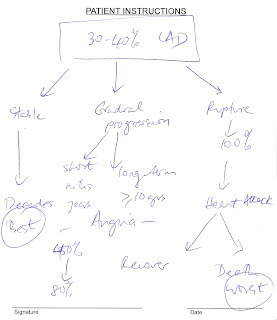 PATIENT INSTRUCTIONS
30-40% LAD
Stable
Gradual progression
Rupture
100%
short
mths
years
long term
≥10 yrs
Decades
Best
- Angina -
Heart Attack
450%
80%
Recover
Death
Worst
Signature
Date